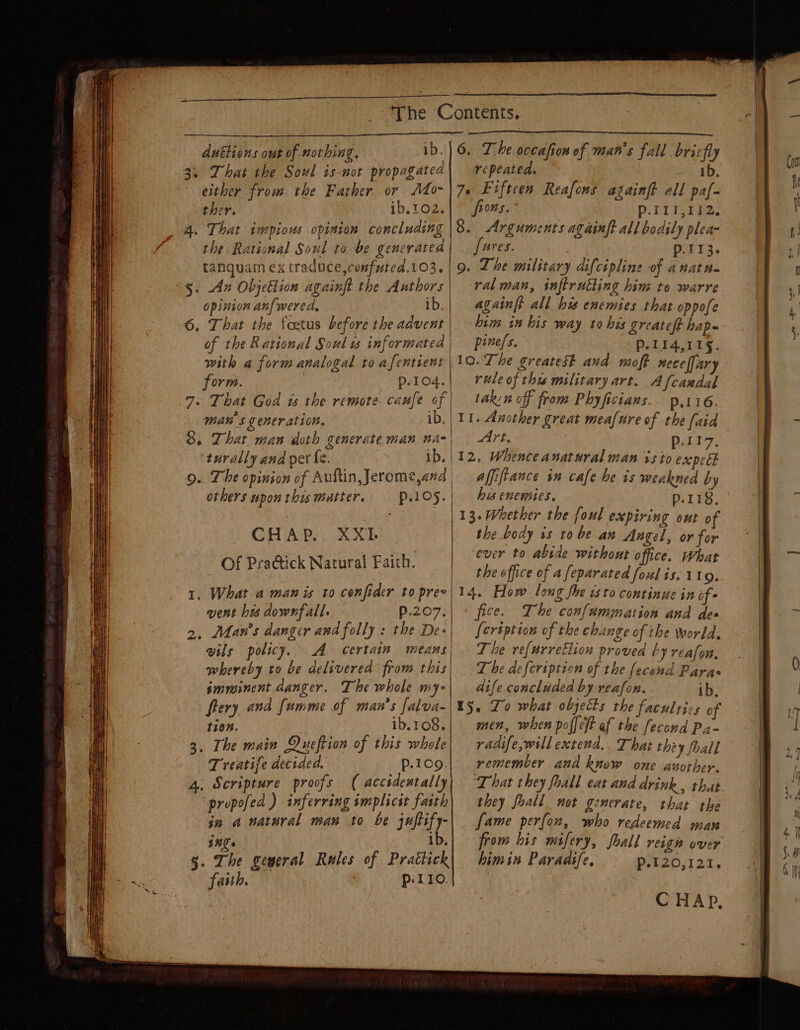 The Contents.
ductions out of nothing. ib.
3. That the Soul is not propagated
either from the Father or Mo-
ther. ib.102.
4. That impious opinion concluding
the Rational Soul to be generated
tanquam ex traduce,confuted.103.
5. An Objection against the Authors
opinion answered. ib.
6, That the fœtus before the advent
of the Rational Soul is informated
with a form analogal to a sentient
form. p.104.
7. That God is the remote cause of
man's generation. ib.
8. That man doth generate man na-
turally and per se. ib.
9. The opinion of Austin,Jerome,and
others upon this matter. p.105.
CHAP. XXI.
Of Practick Natural Faith.
1. What a man is to consider to pre-
vent his downfall. p.207.
2. Man's danger and folly : the De-
vils policy. A certain means
whereby to be delivered from this
imminent danger. The whole my-
stery and summe of man's salva-
tion. ib.108.
3. The main Question of this whole
Treatise decided. p.109.
4. Scripture proofs ( accidentally
proposed ) inferring implicit faith
in a natural man to be justify-
ing. ib.
5. The general Rules of Practick
faith. p.110.
6. The occasion of man's fall briefly
repeated. ib.
7. Fifteen Reasons against all pas-
sions. p.111,112.
8. Arguments against all bodily plea-
sures. p.113.
9. The military discipline of a natu-
ral man, instructing him to warre
against all his enemies that oppose
him in his way to his greatest hap-
piness. p.114,115.
10. The greatest and most necessary
rule of this military art. A scandal
taken off from Physicians. p.116.
11. Another great measure of the said
Art. p.117.
12, Whence a natural man is to expect
assistance in case he is weakned by
his enemies. p.118.
13. Whether the soul expiring out of
the body is to be an Angel, or for
ever to abide without office. What
the office of a separated soul is. 119.
14. How long she is to continue in of-
fice. The consummation and de-
scription of the change of the world.
The resurrection proved by reason.
The description of the second Para-
dise concluded by reason. ib.
15. To what objects the faculties of
men, when possest of the second Pa-
radise,will extend. That they shall
remember and know one another.
That they shall eat and drink, that
they shall not generate, that the
same person, who redeemed man
from his misery, shall reign over
him in Paradise. p.120,121.
CHAP.